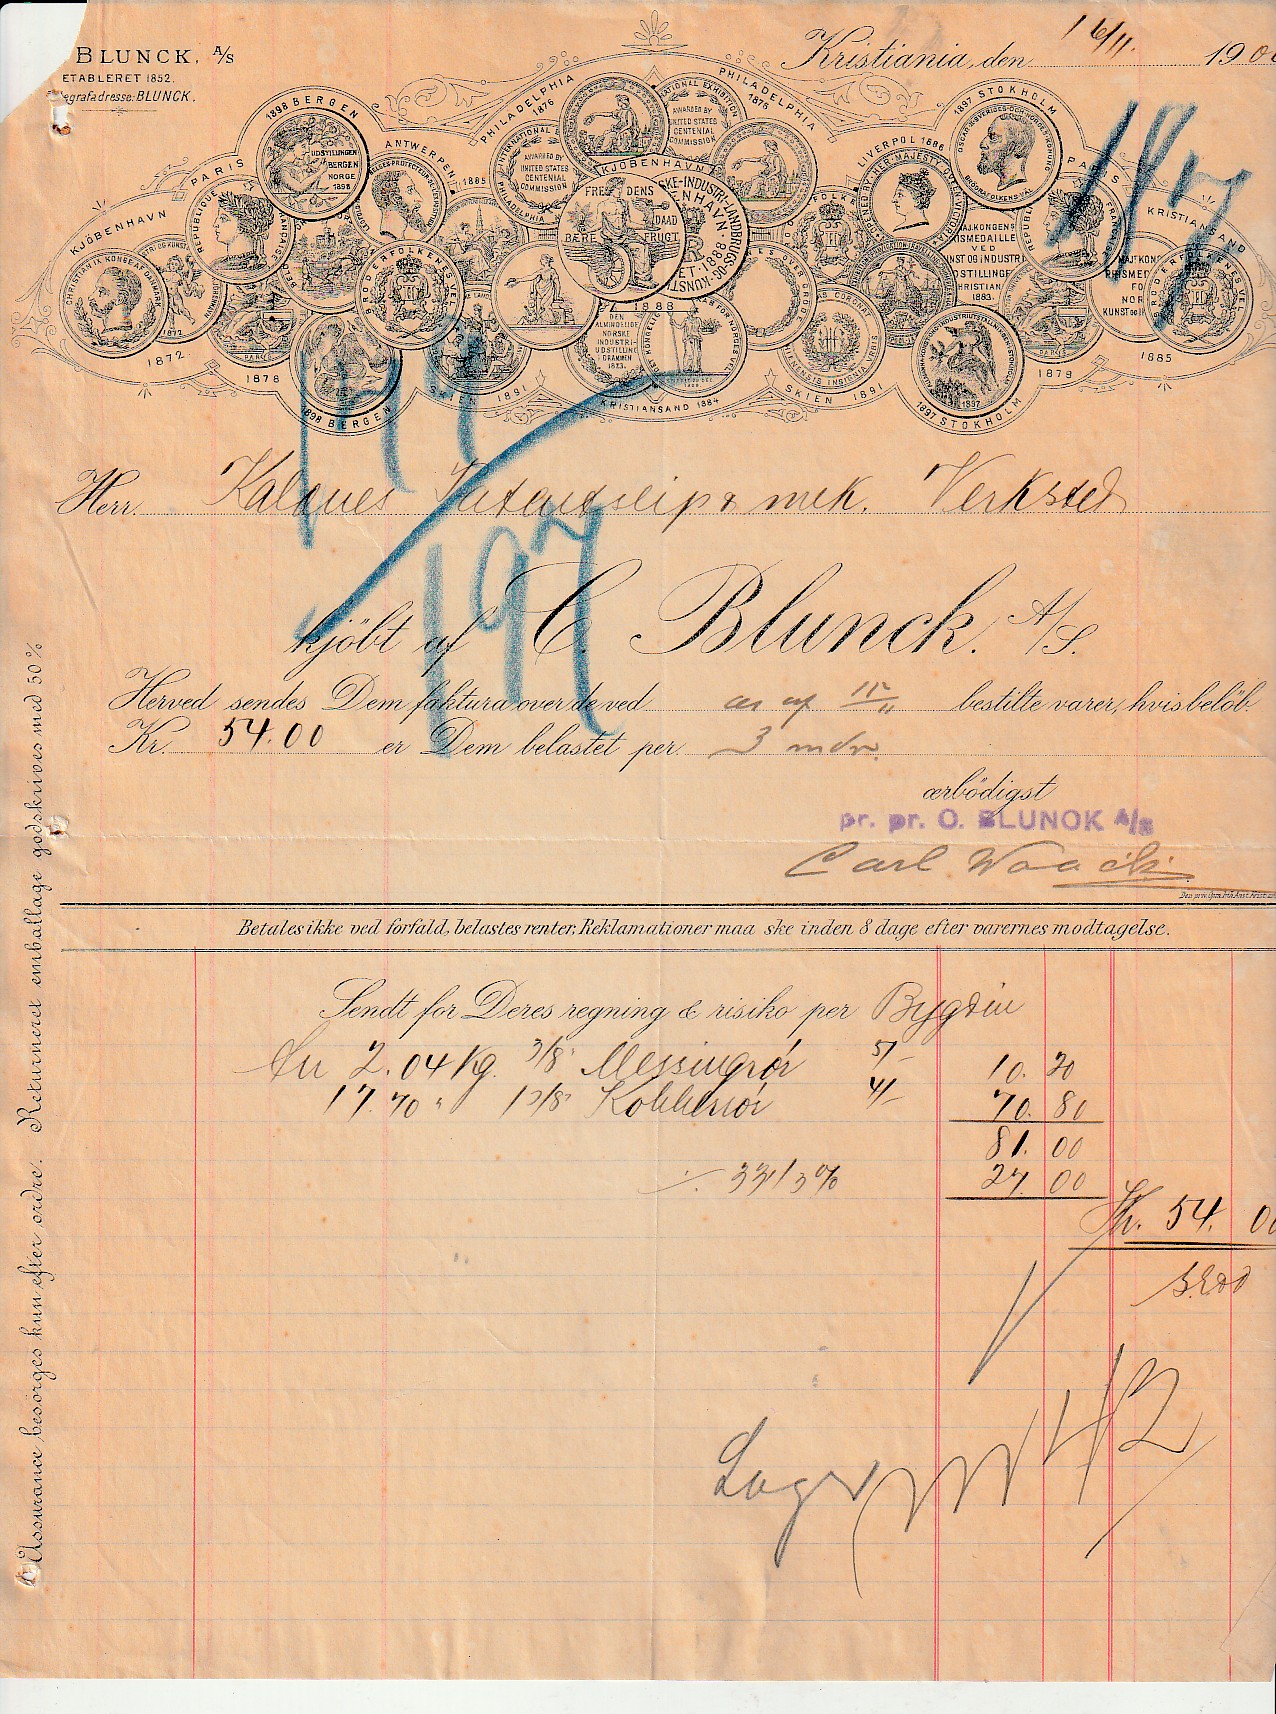 BLUNCK, A/S
ETABLERET 1852.
egrafadresse: BLUNCK.
Kristiania, den 16/11. 190
1898 BERGEN
PHILADELPHIA 1876
PHILADELPHIA 1876
1897 STOKHOLM
PARIS
ANTWERPEN 1885
KJÖBENHAVN
LIVERPOL 1886
PARIS
KRISTIANSAND
KJÖBENHAVN
UDSTILLINGEN BERGEN NORGE 1898
AWARDED BY UNITED STATES CENTENIAL COMMISSION
FREMTIDENS DAAD BÆRE FRUGT
1872
1872
1878
1898 BERGEN
SKIEN 1891
1888
DEN ALMINDELIGE NORSKE INDUSTRI-UDSTILLING DRAMMEN 1883.
KRISTIANSAND 1884
SKIEN 1891
1897 STOKHOLM
1879
1885
187
Herr Kaldnes Patentslip & mek. Verksted
197
kjöbt af C. Blunck. A/S.
Herved sendes Dem faktura over de ved os af 15/11 bestilte varer, hvis belöb.
Kr. 54.00 er Dem belastet per. 3 mdr.
ærbödigst
pr. pr. C. BLUNCK A/S
Carl
Betales ikke ved forfald, belastes renter. Reklamationer maa ske inden 8 dage efter varernes modtagelse.
Sendt for Deres regning & risiko per Bygdin
2.04 Kg. 3/8" Messingrör 5/- 10. 20
17.70 " 1 3/8" Kobberrör 4/- 70. 80
81. 00
÷ 33 1/3 % 27. 00
Kr. 54. 00
Lager
Assurance besörges kun efter ordre. Returneret emballage godskrives med 50 %